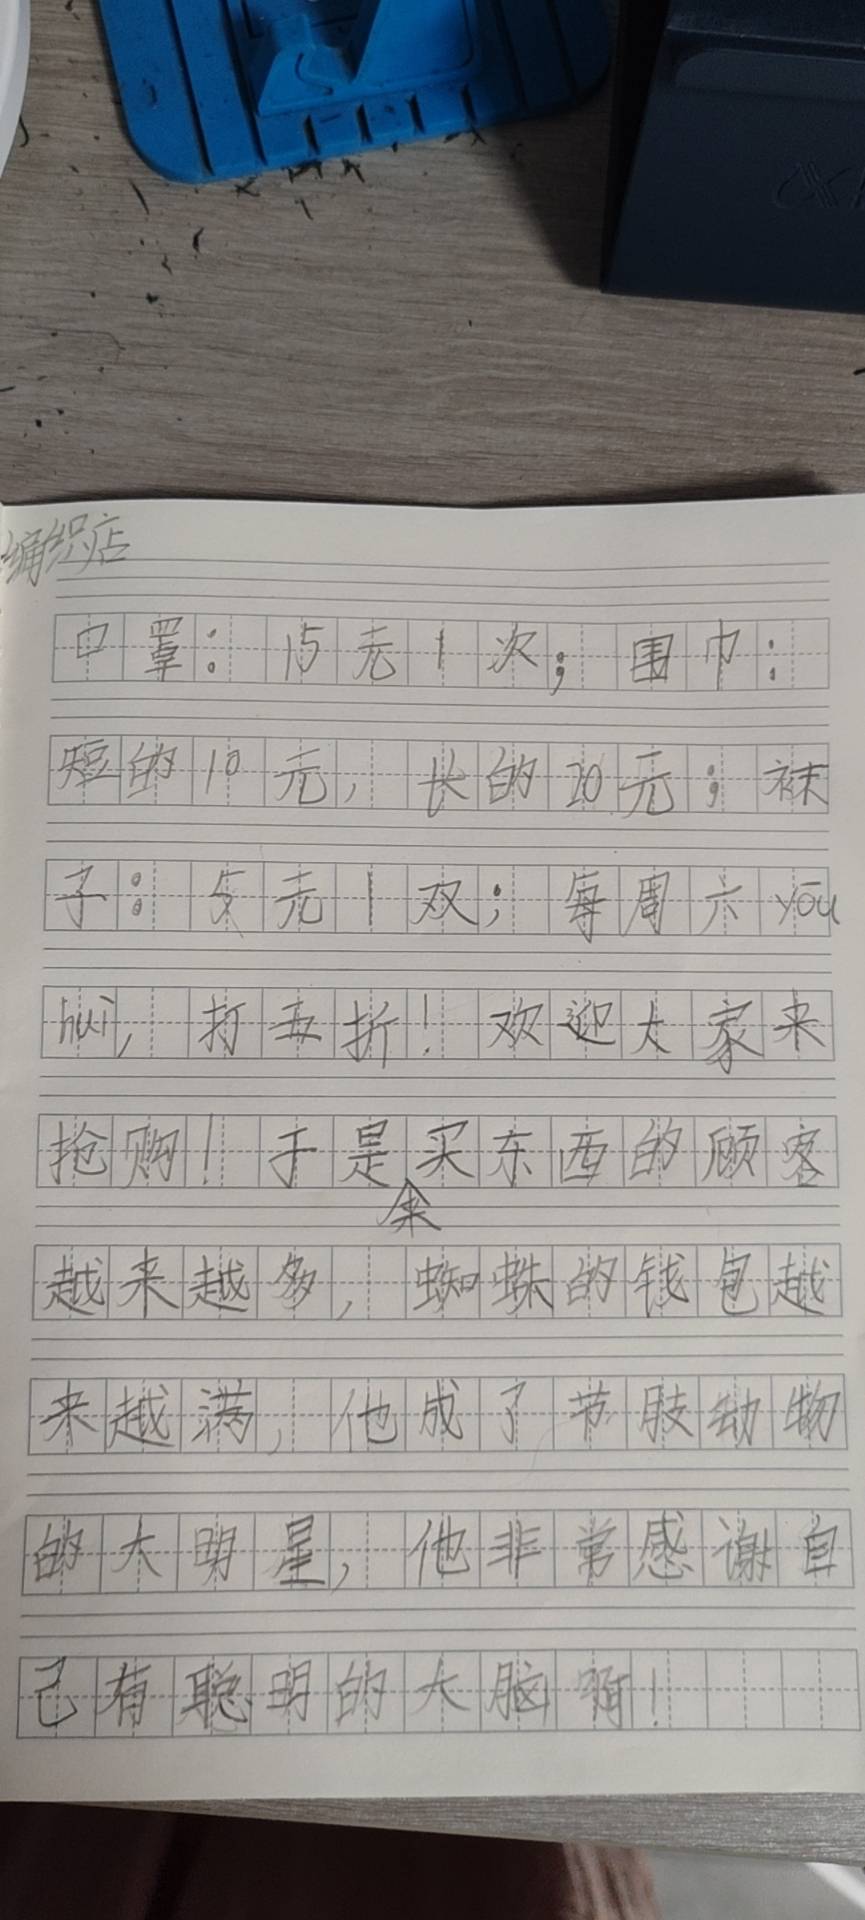 编织店
口罩：15元1次；围巾：
短的10元，长的20元；袜
子：5元1双；每周六yōu
huì，打五折！欢迎大家来
抢购！于是买东西的顾客
来
越来越多，蜘蛛的钱包越
来越满，他成了节肢动物
的大明星，他非常感谢自
己有聪明的大脑啊！